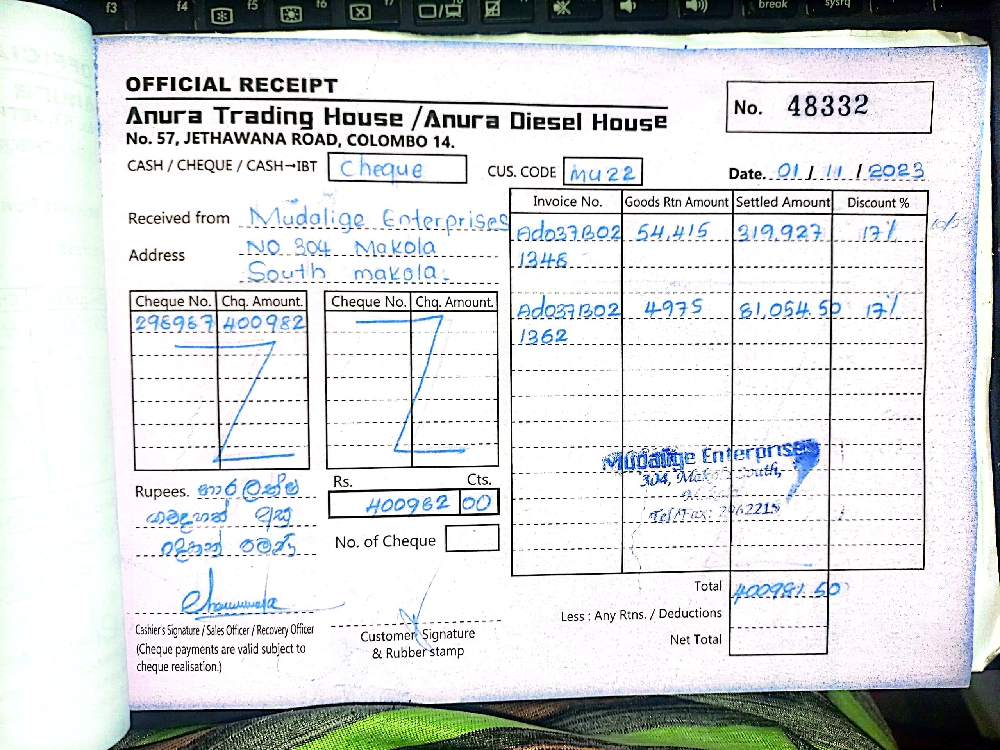 OFFICIAL RECEIPT
Anura Trading House / Anura Diesel House
No. 57, JETHAWANA ROAD, COLOMBO 14.
No. 48332
CASH / CHEQUE / CASH→IBT Cheque
CUS. CODE MU22
Date. 01 / 11 / 2023
Received from Mudalige Enterprises
Address NO 304 Makola
South makola.
Cheque No. Chq. Amount.
296967 400982
Cheque No. Chq. Amount.
Invoice No. Goods Rtn Amount Settled Amount Discount %
Ad037B02 54,415 319,927 17%
1348
Ad037B02 4975 81,054.50 17%
1362
Mudalige Enterprises
304, South,
Tel/Fax: 2962215
Rupees.
Rs. Cts.
400982 00
No. of Cheque
Total 400981.50
Less : Any Rtns. / Deductions
Net Total
Cashier's Signature / Sales Officer / Recovery Officer
(Cheque payments are valid subject to
cheque realisation.)
Customer Signature
& Rubber stamp
f3 f4 f5 f6 f7 f8
break sysrq